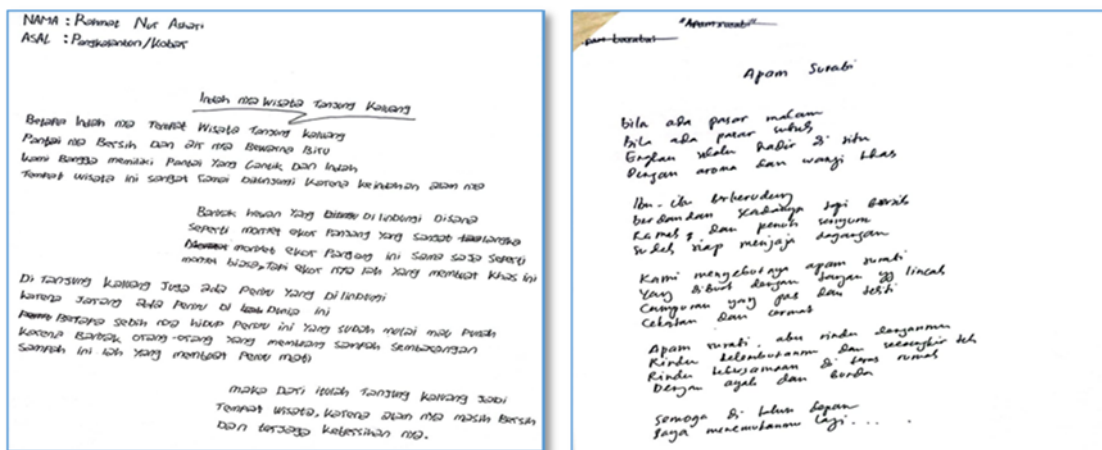 NAMA : Rahmat Nur Ashari
ASAL : Pangkalanbun/Kobar
Indah nya Wisata Tanjung Kaluang
Betapa Indah nya Tempat Wisata Tanjung Kaluang
Pantai nya Bersih Dan air nya Bewarna Biru
kami Bangga memiliki Pantai Yang Cantik Dan Indah
Tempat wisata ini sangat ramai Dikunjungi Karena keindahan alam nya
Banyak hewan Yang Di lindungi Disana
seperti monyet ekor Panjang Yang sangat langka
monyet ekor Panjang ini sama saja seperti
monyet biasa, Tapi ekor nya lah Yang membuat khas ini
Di Tanjung kaluang Juga ada Penyu Yang Di lindungi
karena Jarang ada Penyu Di Dunia ini
Betapa sedih nya hidup Penyu ini Yang sudah mulai mau Punah
karena Banyak orang-orang Yang membuang sampah Sembarangan
Sampah ini lah Yang membuat Penyu mati
maka Dari itulah Tanjung kaluang Jadi
Tempat wisata, karena alam nya masih Bersih
Dan terjaga kebersihan nya.
"Apam surabi"
Apam Surabi
bila ada pasar malam
Bila ada pasar subuh
Engkau selalu hadir di situ
Dengan aroma dan wangi khas
Ibu-ibu berkerudung
berdandan seadanya tapi bersih
Ramah, dan penuh senyum
sudah siap menjaja dagangan
Kami menyebutnya apam surabi
Yang dibuat dengan tangan yg lincah
Campuran yang pas dan teliti
Cekatan dan cermat
Apam surabi, aku rindu denganmu
Rindu kelembutanmu dan secangkir teh
Rindu kebersamaan di teras rumah
Dengan ayah dan bunda
Semoga di tahun depan
Saya menemukanmu lagi....